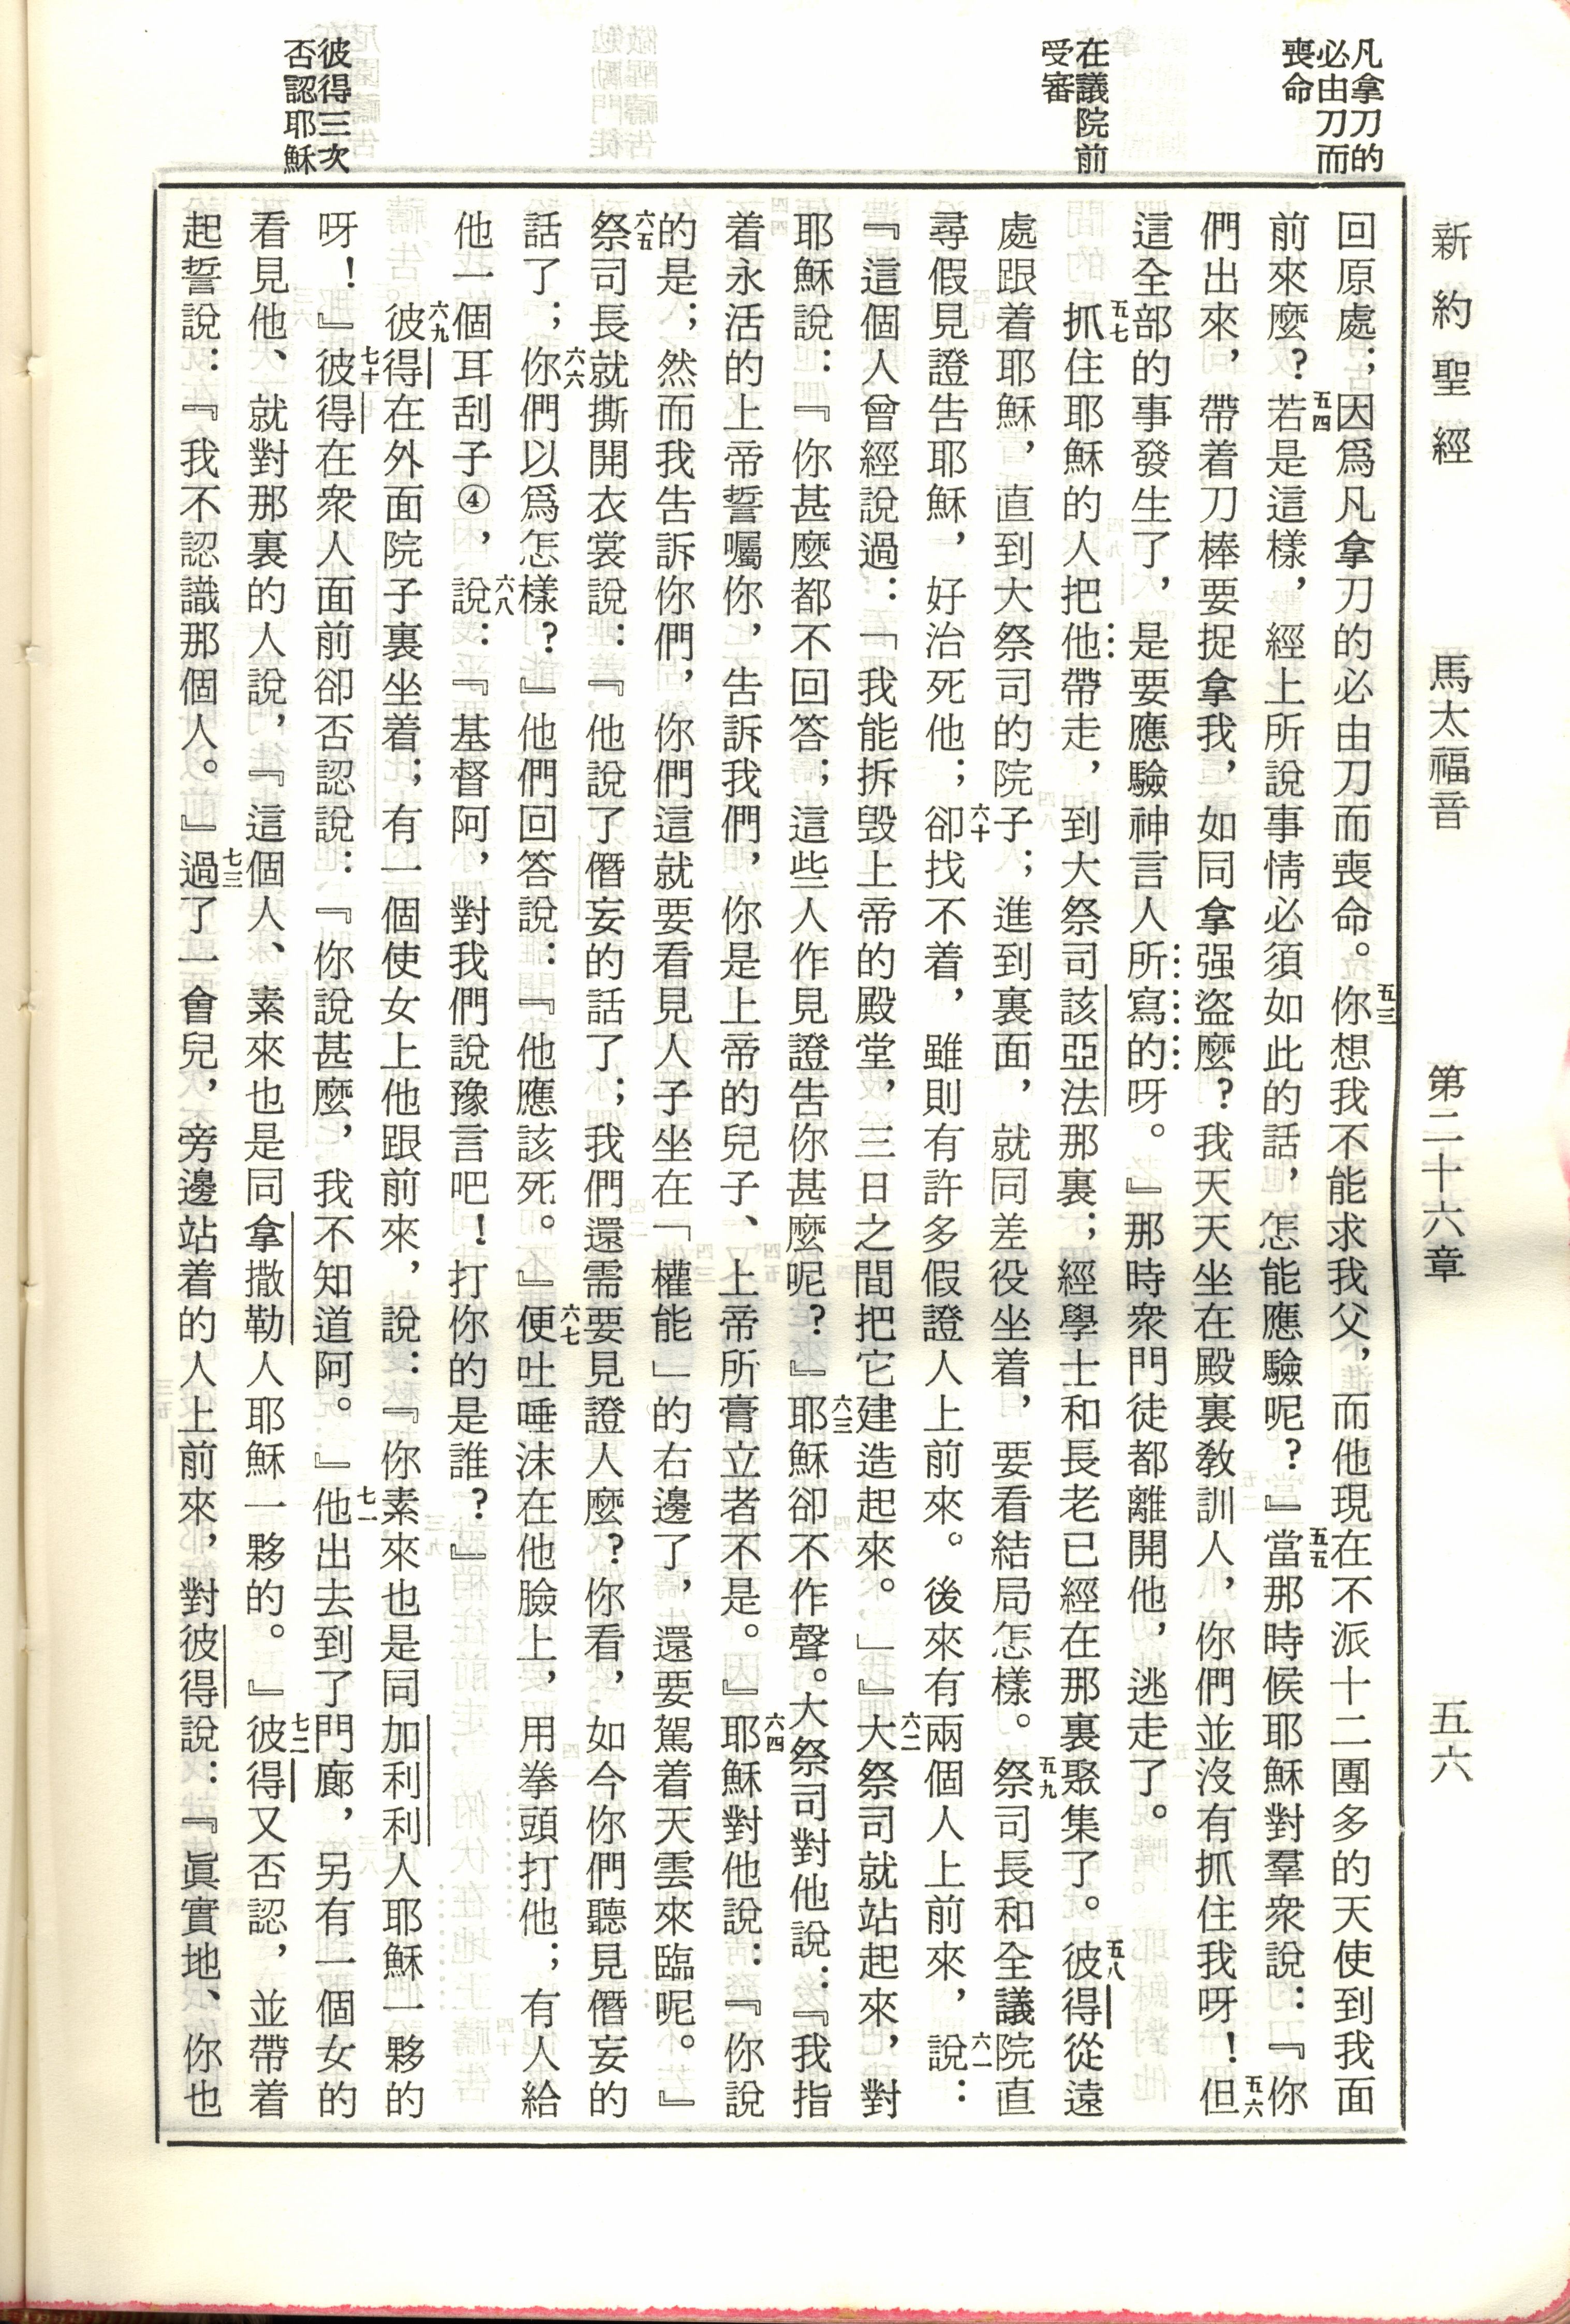 新約聖經 馬太福音 第二十六章 五六
凡拿刀的
必由刀而
喪命
在議院前
受審
彼得三次
否認耶穌
回原處；因爲凡拿刀的必由刀而喪命。五三你想我不能求我父，而他現在不派十二團多的天使到我面
前來麼？五四若是這樣，經上所說事情必須如此的話，怎能應驗呢？』五五當那時候耶穌對羣衆說：『你
們出來，帶着刀棒要捉拿我，如同拿强盜麼？我天天坐在殿裏教訓人，你們並沒有抓住我呀！五六但
這全部的事發生了，是要應驗神言人所寫的呀。』那時衆門徒都離開他，逃走了。
五七抓住耶穌的人把他帶走，到大祭司該亞法那裏；經學士和長老已經在那裏聚集了。五八彼得從遠
處跟着耶穌，直到大祭司的院子；進到裏面，就同差役坐着，要看結局怎樣。五九祭司長和全議院直
尋假見證告耶穌，好治死他；六十卻找不着，雖則有許多假證人上前來。後來有兩個人上前來，六一說：
『這個人曾經說過：「我能拆毁上帝的殿堂，三日之間把它建造起來。」』六二大祭司就站起來，對
耶穌說：『你甚麼都不回答；這些人作見證告你甚麼呢？』六三耶穌卻不作聲。大祭司對他說：『我指
着永活的上帝誓囑你，吿訴我們，你是上帝的兒子、上帝所膏立者不是。』六四耶穌對他說：『你說
的是；然而我吿訴你們，你們這就要看見人子坐在「權能」的右邊了，還要駕着天雲來臨呢。』
六五祭司長就撕開衣裳說：『他說了僭妄的話了；我們還需要見證人麼？你看，如今你們聽見僭妄的
話了；六六你們以爲怎樣？』他們回答說：『他應該死。』六七便吐唾沫在他臉上，用拳頭打他；有人給
他一個耳刮子④，六八說：『基督阿，對我們說豫言吧！打你的是誰？』
六九彼得在外面院子裏坐着；有一個使女上他跟前來，說：『你素來也是同加利利人耶穌一夥的
呀！』七十彼得在衆人面前卻否認說：『你說甚麼，我不知道阿。』七一他出去到了門廊，另有一個女的
看見他、就對那裏的人說，『這個人、素來也是同拿撒勒人耶穌一夥的。』七二彼得又否認，並帶着
起誓說：『我不認識那個人。』七三過了一會兒，旁邊站着的人上前來，對彼得說：『眞實地、你也